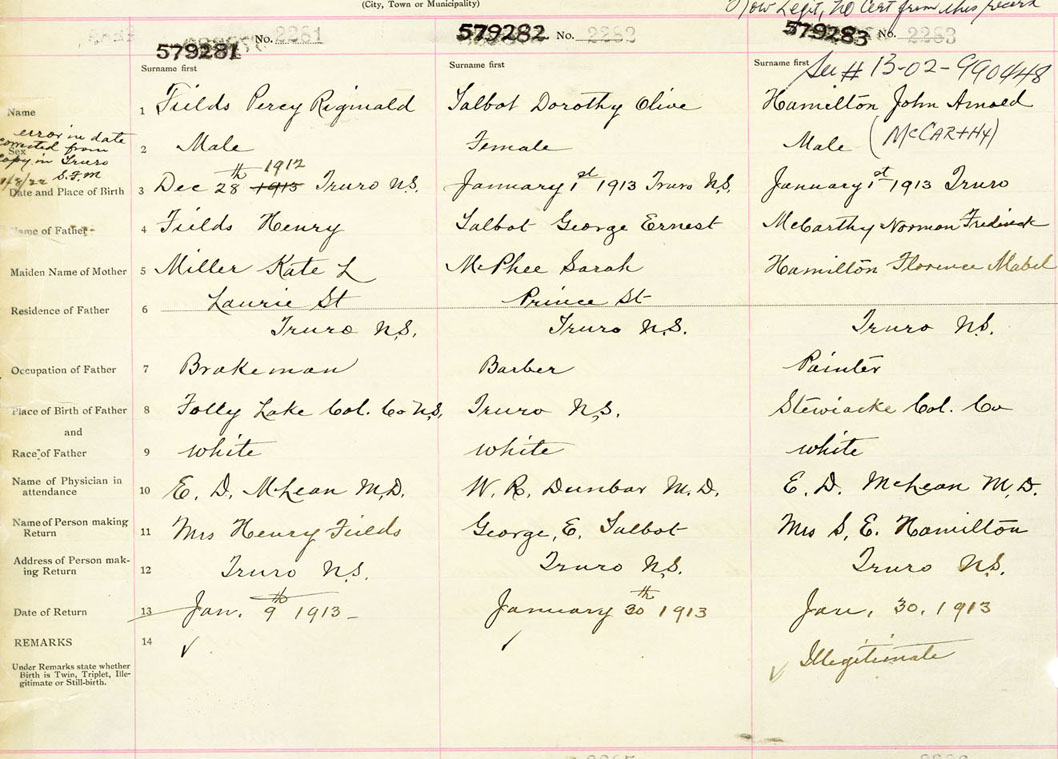 (City, Town or Municipality)
Now Legit, No Cert from this record
579281 No. 2281
579282 No. 2282
579283 No. 2283
Surname first
Surname first
Surname first See # 13-02-990448
Name 1 Fields Percy Riginald
Talbot Dorothy Olive
Hamilton John Arnold
error in date
corrected from
copy in Truro
S.F.M
Sex 2 Male
Female
Male (McCARTHY)
Date and Place of Birth 3 Dec 28th 1913 1912 Truro N.S.
January 1st 1913 Truro N.S.
January 1st 1913 Truro
Name of Father 4 Fields Henry
Talbot George Ernest
McCarthy Norman Frederick
Maiden Name of Mother 5 Miller Kate L
McPhee Sarah
Hamilton Florence Mabel
Residence of Father 6 Laurie St
Truro N.S.
Prince St
Truro N.S.
Truro N.S.
Occupation of Father 7 Brakeman
Barber
Painter
Place of Birth of Father 8 Folly Lake Col. Co N.S.
Truro N.S.
Stewiacke Col. Co
and
Race of Father 9 white
white
white
Name of Physician in
attendance 10 E. D. McLean M.D.
W. R. Dunbar M.D.
E. D. McLean M.D.
Name of Person making
Return 11 Mrs Henry Fields
George, E. Talbot
Mrs S, E. Hamilton
Address of Person mak-
ing Return 12 Truro N.S.
Truro N.S.
Truro N.S.
Date of Return 13 Jan. 9th 1913
January 30th 1913
Jan, 30, 1913
REMARKS 14
Under Remarks state whether
Birth is Twin, Triplet, Ille-
gitimate or Still-birth.
Illegitimate